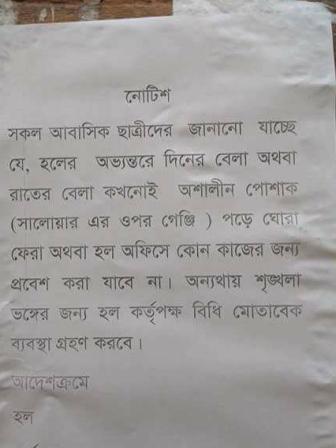 নোটিশ
সকল আবাসিক ছাত্রীদের জানানো যাচ্ছে
যে, হলের অভ্যন্তরে দিনের বেলা অথবা
রাতের বেলা কখনোই অশালীন পোশাক
(সালোয়ার এর ওপর গেঞ্জি ) পড়ে ঘোরা
ফেরা অথবা হল অফিসে কোন কাজের জন্য
প্রবেশ করা যাবে না। অন্যথায় শৃঙ্খলা
ভঙ্গের জন্য হল কর্তৃপক্ষ বিধি মোতাবেক
ব্যবস্থা গ্রহণ করবে।
আদেশক্রমে
হল